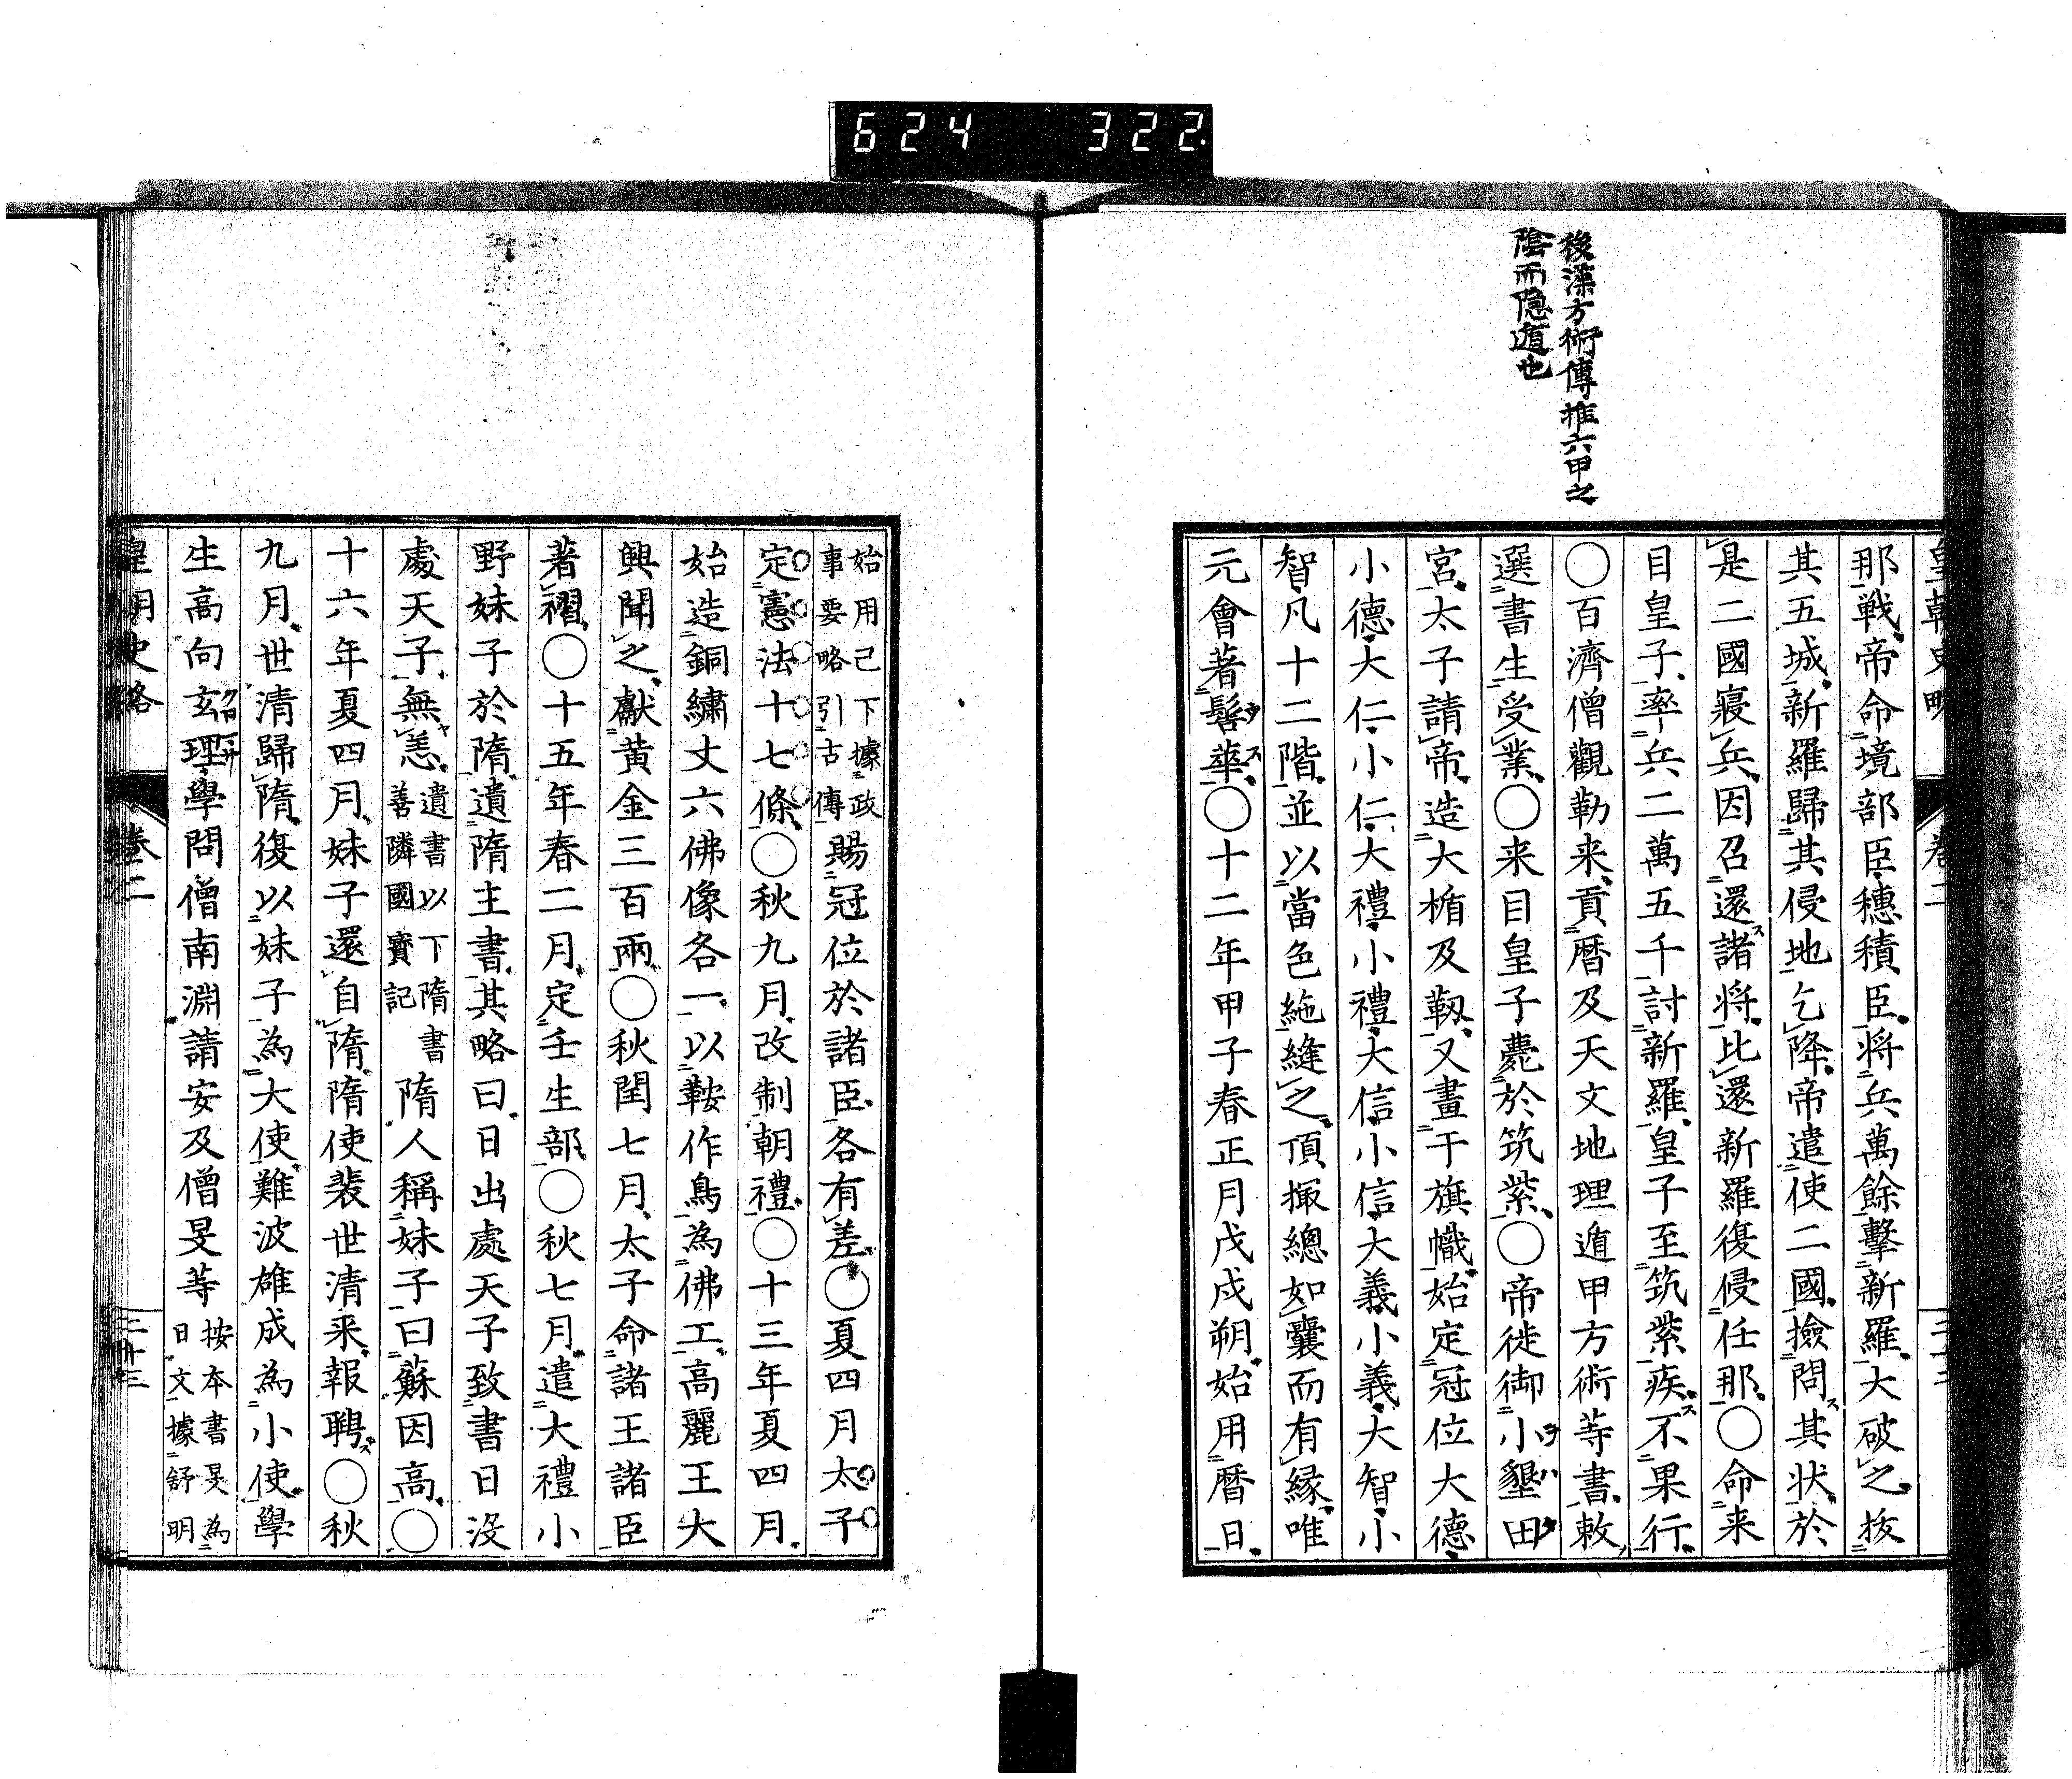 624 322
後漢方術傳推六甲之
陰而隐遁也
皇朝史略 卷二
那戦帝命境部臣穗積臣将兵萬餘擊新羅大破之抜
其五城新羅歸其侵地乞降帝遣使二國撿問其状於
是二國寝兵因召還諸将比還新羅復侵任那〇命来
目皇子率兵二萬五千討新羅皇子至筑紫疾不果行
〇百濟僧觀勒来貢暦及天文地理遁甲方術等書敕
選書生受業〇来目皇子薨於筑紫〇帝徙御小墾田
宮太子請帝造大楯及靱又畫干旗幟始定冠位大德
小德大仁小仁大禮小禮大信小信大義小義大智小
智凡十二階並以當色絁縫之頂撮總如囊而有縁唯
元會著髻華〇十二年甲子春正月戊戌朔始用暦日
始用已下據政
事要略引古傳
賜冠位於諸臣各有差〇夏四月太子
定憲法十七條〇秋九月改制朝禮〇十三年夏四月
始造銅繍丈六佛像各一以鞍作鳥為佛工高麗王大
興聞之獻黃金三百兩〇秋閏七月太子命諸王諸臣
著褶〇十五年春二月定壬生部〇秋七月遣大禮小
野妹子於隋遺隋主書其略曰日出處天子致書日没
處天子無恙
遺書以下隋書
善隣國寶記
隋人稱妹子曰蘇因高〇
十六年夏四月妹子還自隋隋使裴世清来報聘〇秋
九月世清歸隋復以妹子為大使難波雄成為小使學
生高向玄理學問僧南淵請安及僧旻等
按本書旻為
日文據舒明
皇朝史略 卷二 二十三